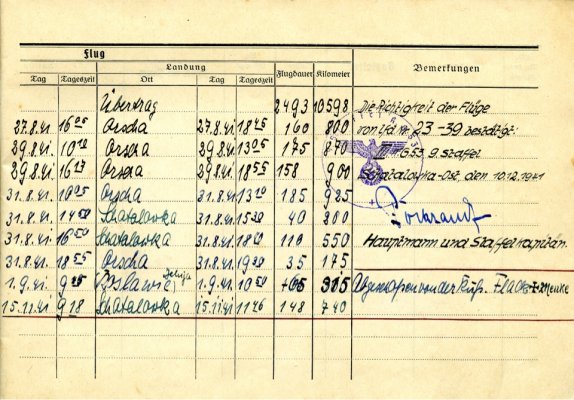 Flug
Landung
Tag Tageszeit Ort Tag Tageszeit Flugdauer Kilometer Bemerkungen
Übertrag 2493 10598 Die Richtigkeit der Flüge
27.8.41 16 05 Orscha 27.8.41 18 45 160 800 von lfd. Nr. 23-39 bestätigt:
29.8.41 10 10 Orscha 29.8.41 13 05 175 870 9. Staffel
29.8.41 16 17 Orscha 29.8.41 18 55 158 900 Schatalowka-Ost, den 10.12.1941
31.8.41 10 05 Orscha 31.8.41 13 10 185 925
31.8.41 14 50 Schatalovka 31.8.41 15 30 40 200
31.8.41 16 50 Schatalovka 31.8.41 18 40 110 550 Hauptmann und Staffelkapitän.
31.8.41 18 55 Orscha 31.8.41 19 30 35 175
1.9.41 9 45 1.9.41 10 50 65 315 Abgeschossen von der Russ. Flack
15.11.41 9 18 Schatalovka 15.11.41 11 46 148 740